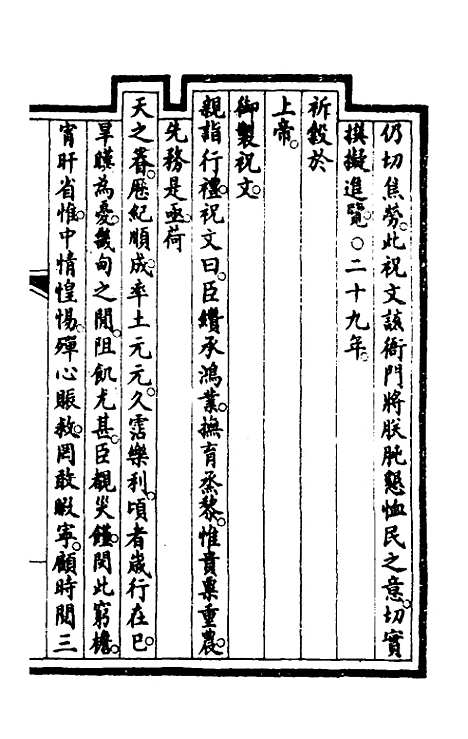 仍切焦勞。此祝文該衙門將朕肫懇恤民之意。切實
撰擬進覽。○二十九年。
祈穀於
上帝。
御製祝文。
親詣行禮。祝文曰。臣纘承鴻業。撫育烝黎。惟貴粟重農。
先務是亟。荷
天之眷。歷紀順成。率土元元。久霑樂利。頃者歲行在巳。
旱暵為憂。畿甸之閒。阻飢尤甚。臣覩災饉。閔此窮檐。
宵旰省惟。中情惶惕。殫心賑救。罔敢暇寧。顧時閱三